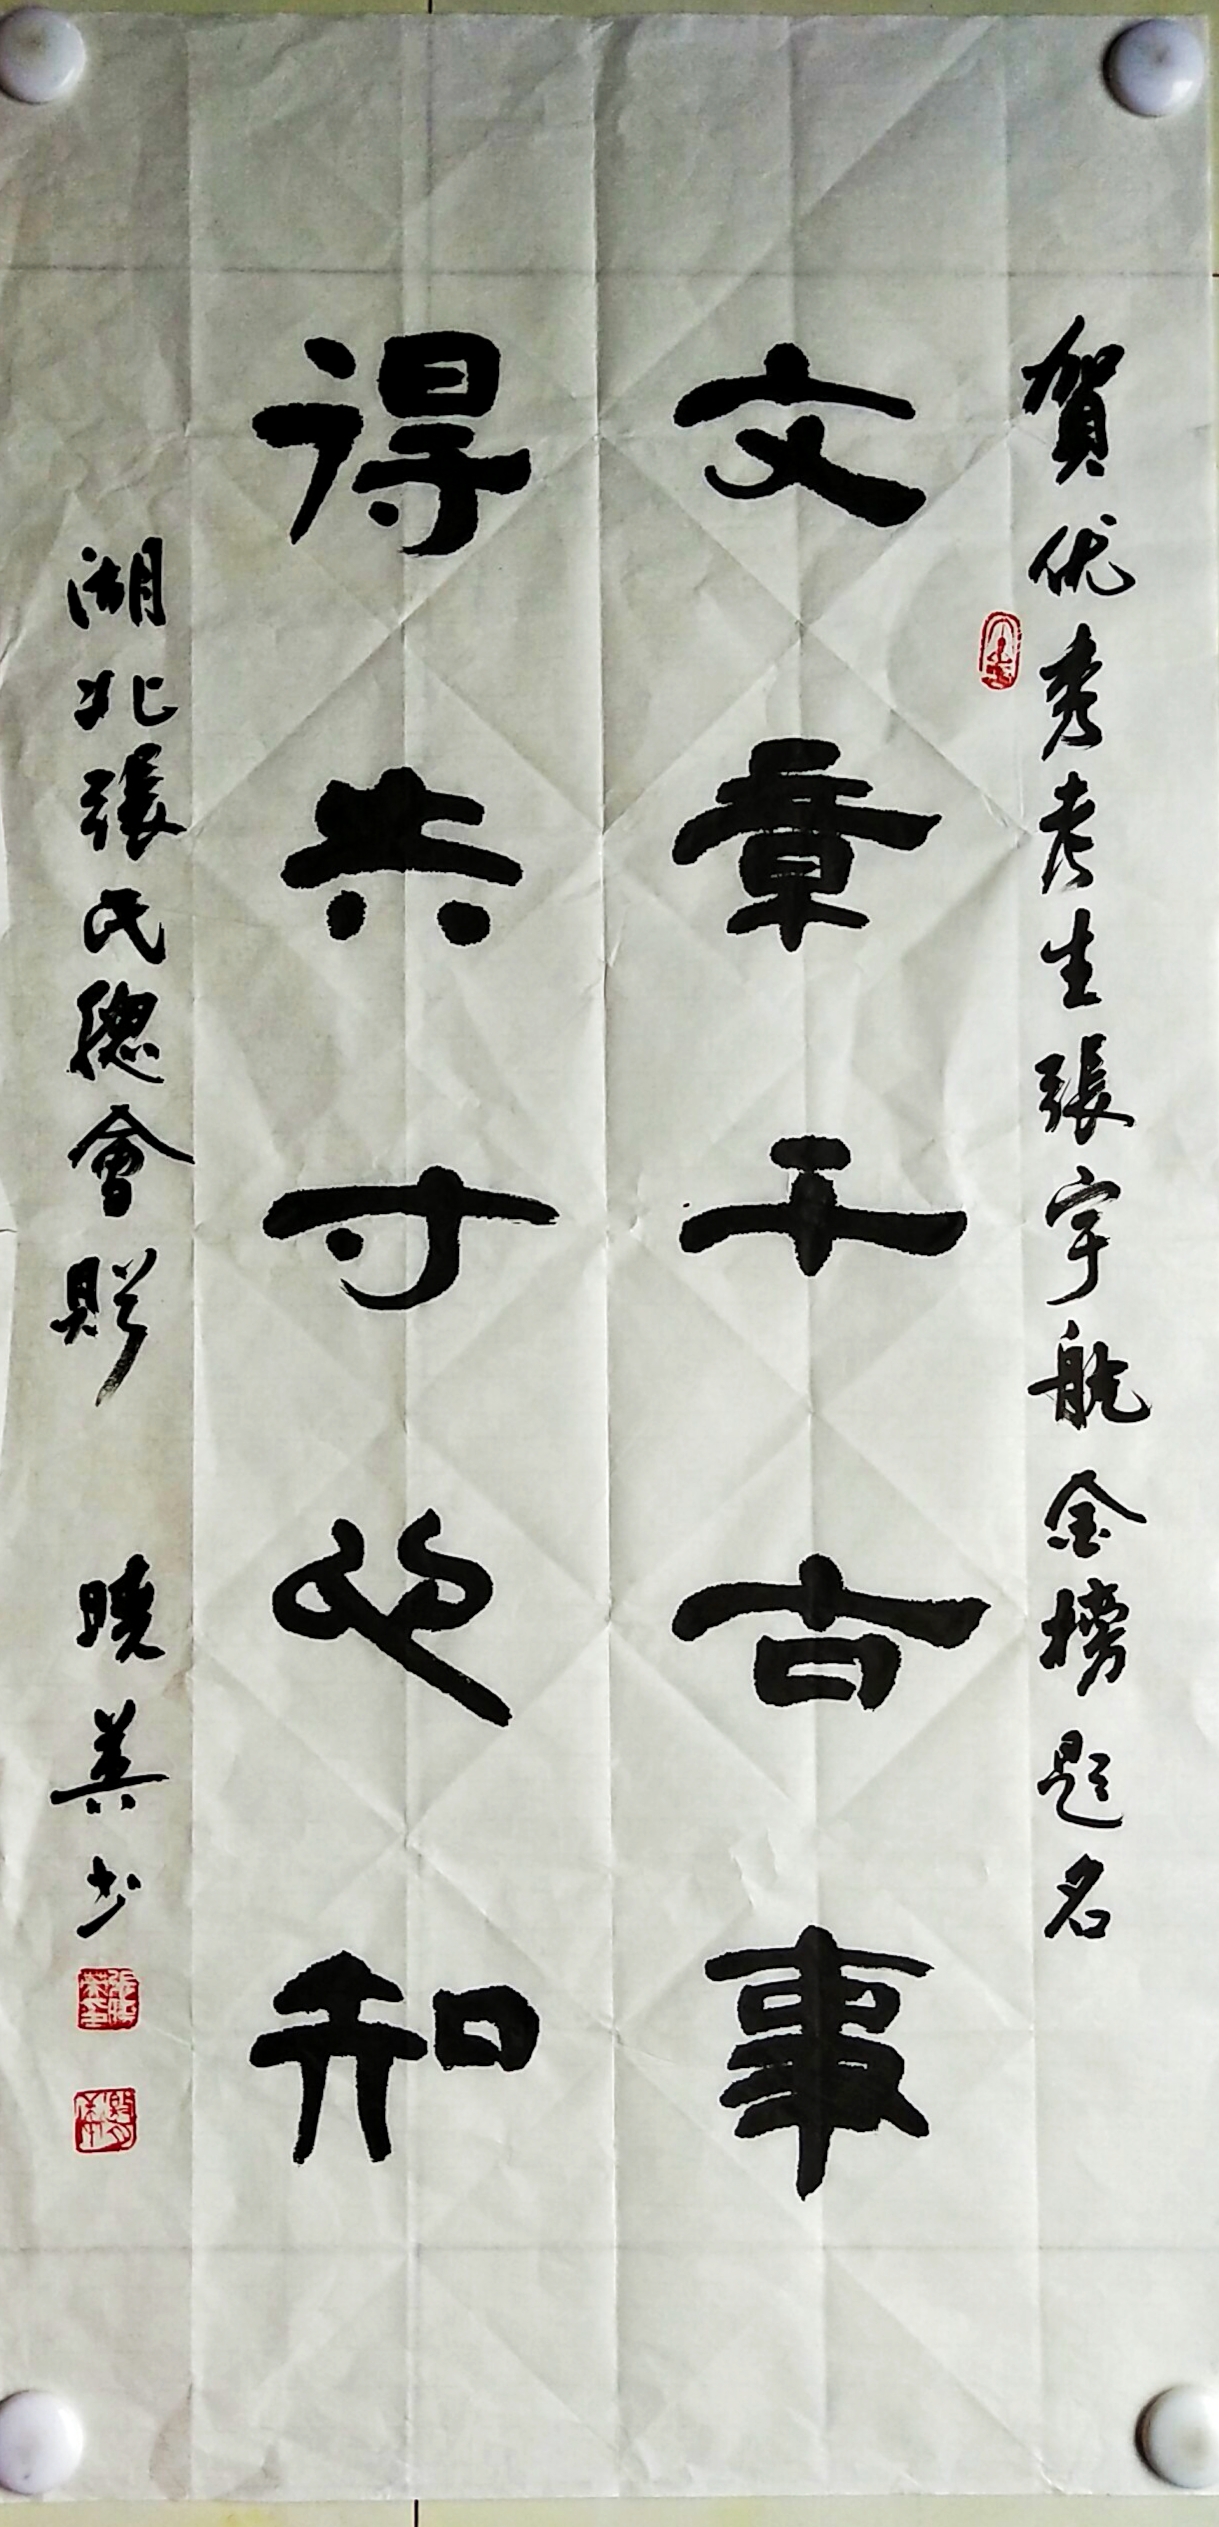 賀优秀考生張宇航金榜題名
文章千古事
得失寸心知
湖北張氏總會贈 曉美书